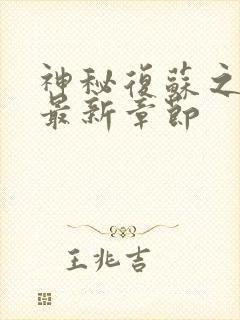 神秘復蘇之
最新章節
王兆吉